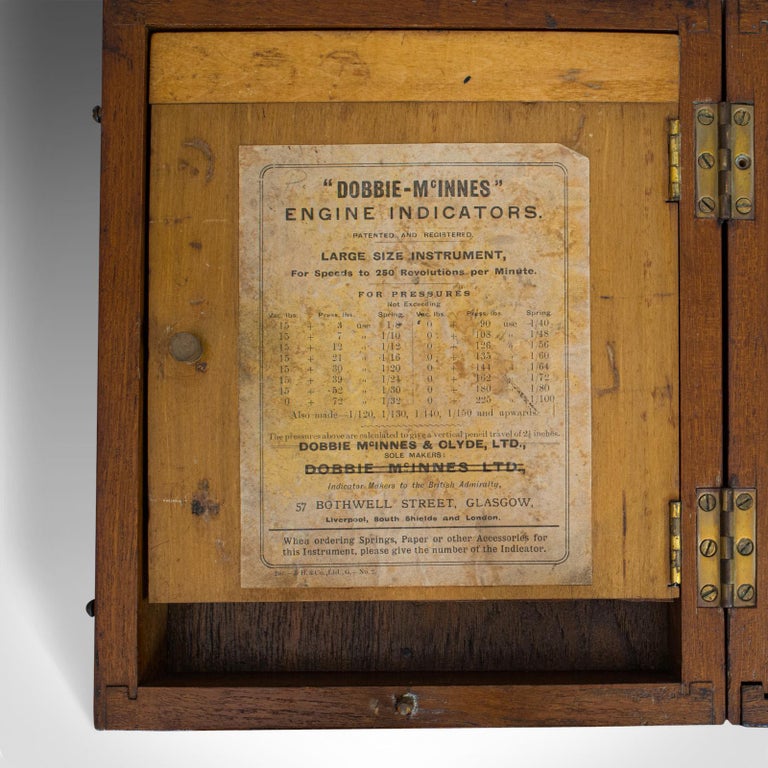 "DOBBIE-McINNES"
ENGINE INDICATORS.
PATENTED AND REGISTERED.
LARGE SIZE INSTRUMENT,
For Speeds to 250 Revolutions per Minute.
FOR PRESSURES
Not Exceeding
Vac. lbs. Press. lbs. Spring. Vac. lbs. Press lbs. Spring.
15 + 3 use 1/8 0 + 90 use 1/40
15 + 7 " 1/10 0 + 108 " 1/48
15 + 12 " 1/12 0 + 126 " 1/56
15 + 21 " 1/16 0 + 135 " 1/60
15 + 30 " 1/20 0 + 144 " 1/64
15 + 39 " 1/24 0 + 162 " 1/72
15 + 52 " 1/30 0 + 180 " 1/80
0 + 72 " 1/32 0 + 225 " 1/100
Also made—1/120, 1/130, 1/140, 1/150 and upwards.
The pressures above are calculated to give a vertical pencil travel of 2¼ inches.
DOBBIE McINNES & CLYDE, LTD.,
SOLE MAKERS:
DOBBIE McINNES LTD.,
Indicator Makers to the British Admiralty,
57 BOTHWELL STREET, GLASGOW,
Liverpool, South Shields and London.
When ordering Springs, Paper or other Accessories for
this Instrument, please give the number of the Indicator.
H. & Co., Ltd., G.—No. 2.